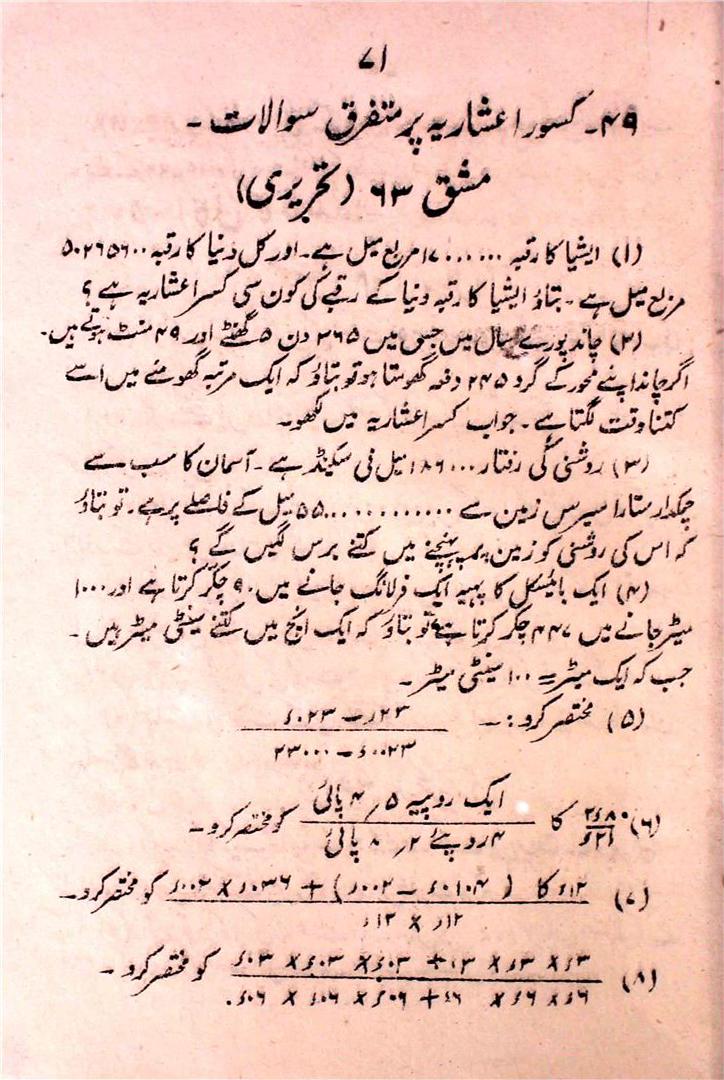 ۷۱
۴۹۔ کسور اعشاریہ پر متفرق سوالات۔
مشق ۶۳ (تحریری)
(۱) ایشیا کا رقبہ ۱۷۰۰۰۰۰۰ مربع میل ہے۔ اور کل دنیا کا رقبہ ۵۰۲۶۵۶۰۰
مربع میل ہے۔ بتاؤ ایشیا کا رقبہ دنیا کے رقبے کی کون سی کسر اعشاریہ ہے؟
(۲) چاند پورے سال میں جس میں ۳۶۵ دن ۵ گھنٹے اور ۴۹ منٹ ہوتے ہیں۔
اگر چاند اپنے محور کے گرد ۲۴۵ دفعہ گھومتا ہو تو بتاؤ کہ ایک مرتبہ گھومنے میں اسے
کتنا وقت لگتا ہے۔ جواب کسر اعشاریہ میں لکھو۔
(۳) روشنی کی رفتار ۱۸۶۰۰۰ میل فی سکینڈ ہے۔ آسمان کا سب سے
چمکدار ستارا سیرس زمین سے ۵۵۰۰۰۰۰۰۰۰۰۰۰۰ میل کے فاصلے پر ہے۔ تو بتاؤ
کہ اس کی روشنی کو زمین پر پہنچنے میں کتنے برس لگیں گے؟
(۴) ایک بائیسکل کا پہیہ ایک فرلانگ جانے میں ۹۰ چکر کرتا ہے اور ۱۰۰۰
میٹر جانے میں ۴۴۷ چکر کرتا ہے تو بتاؤ کہ ایک انچ میں کتنے سینٹی میٹر ہیں۔
جب کہ ایک میٹر = ۱۰۰ سینٹی میٹر۔
(۵) مختصر کرو:۔ ۲۳ء۱ − ۰۲۳ء
۲۳۰۰۰ − ۰۰۲۳ء
(۶) کا ایک روپیہ ۵ر ۴ پائی کو مختصر کرو۔
۴ روپے ۲ر ۸ پائی
(۷) ۱۲ء کا (۰۱۰۴ء − ۰۰۲ء) + ۰۳۶ء × ۰۰۲ء کو مختصر کرو۔
۱۲ء × ۱۲ء
(۸) ۳ء × ۳ء × ۳ء + ۰۳ء × ۰۳ء × ۰۳ء کو مختصر کرو۔
۶ء × ۶ء × ۶ء + ۰۶ء × ۰۶ء × ۰۶ء